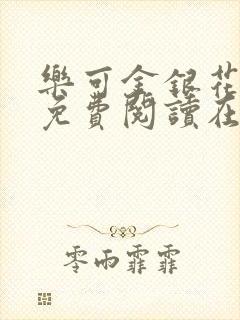 樂可金銀花
免費閱讀在
零雨霏霏